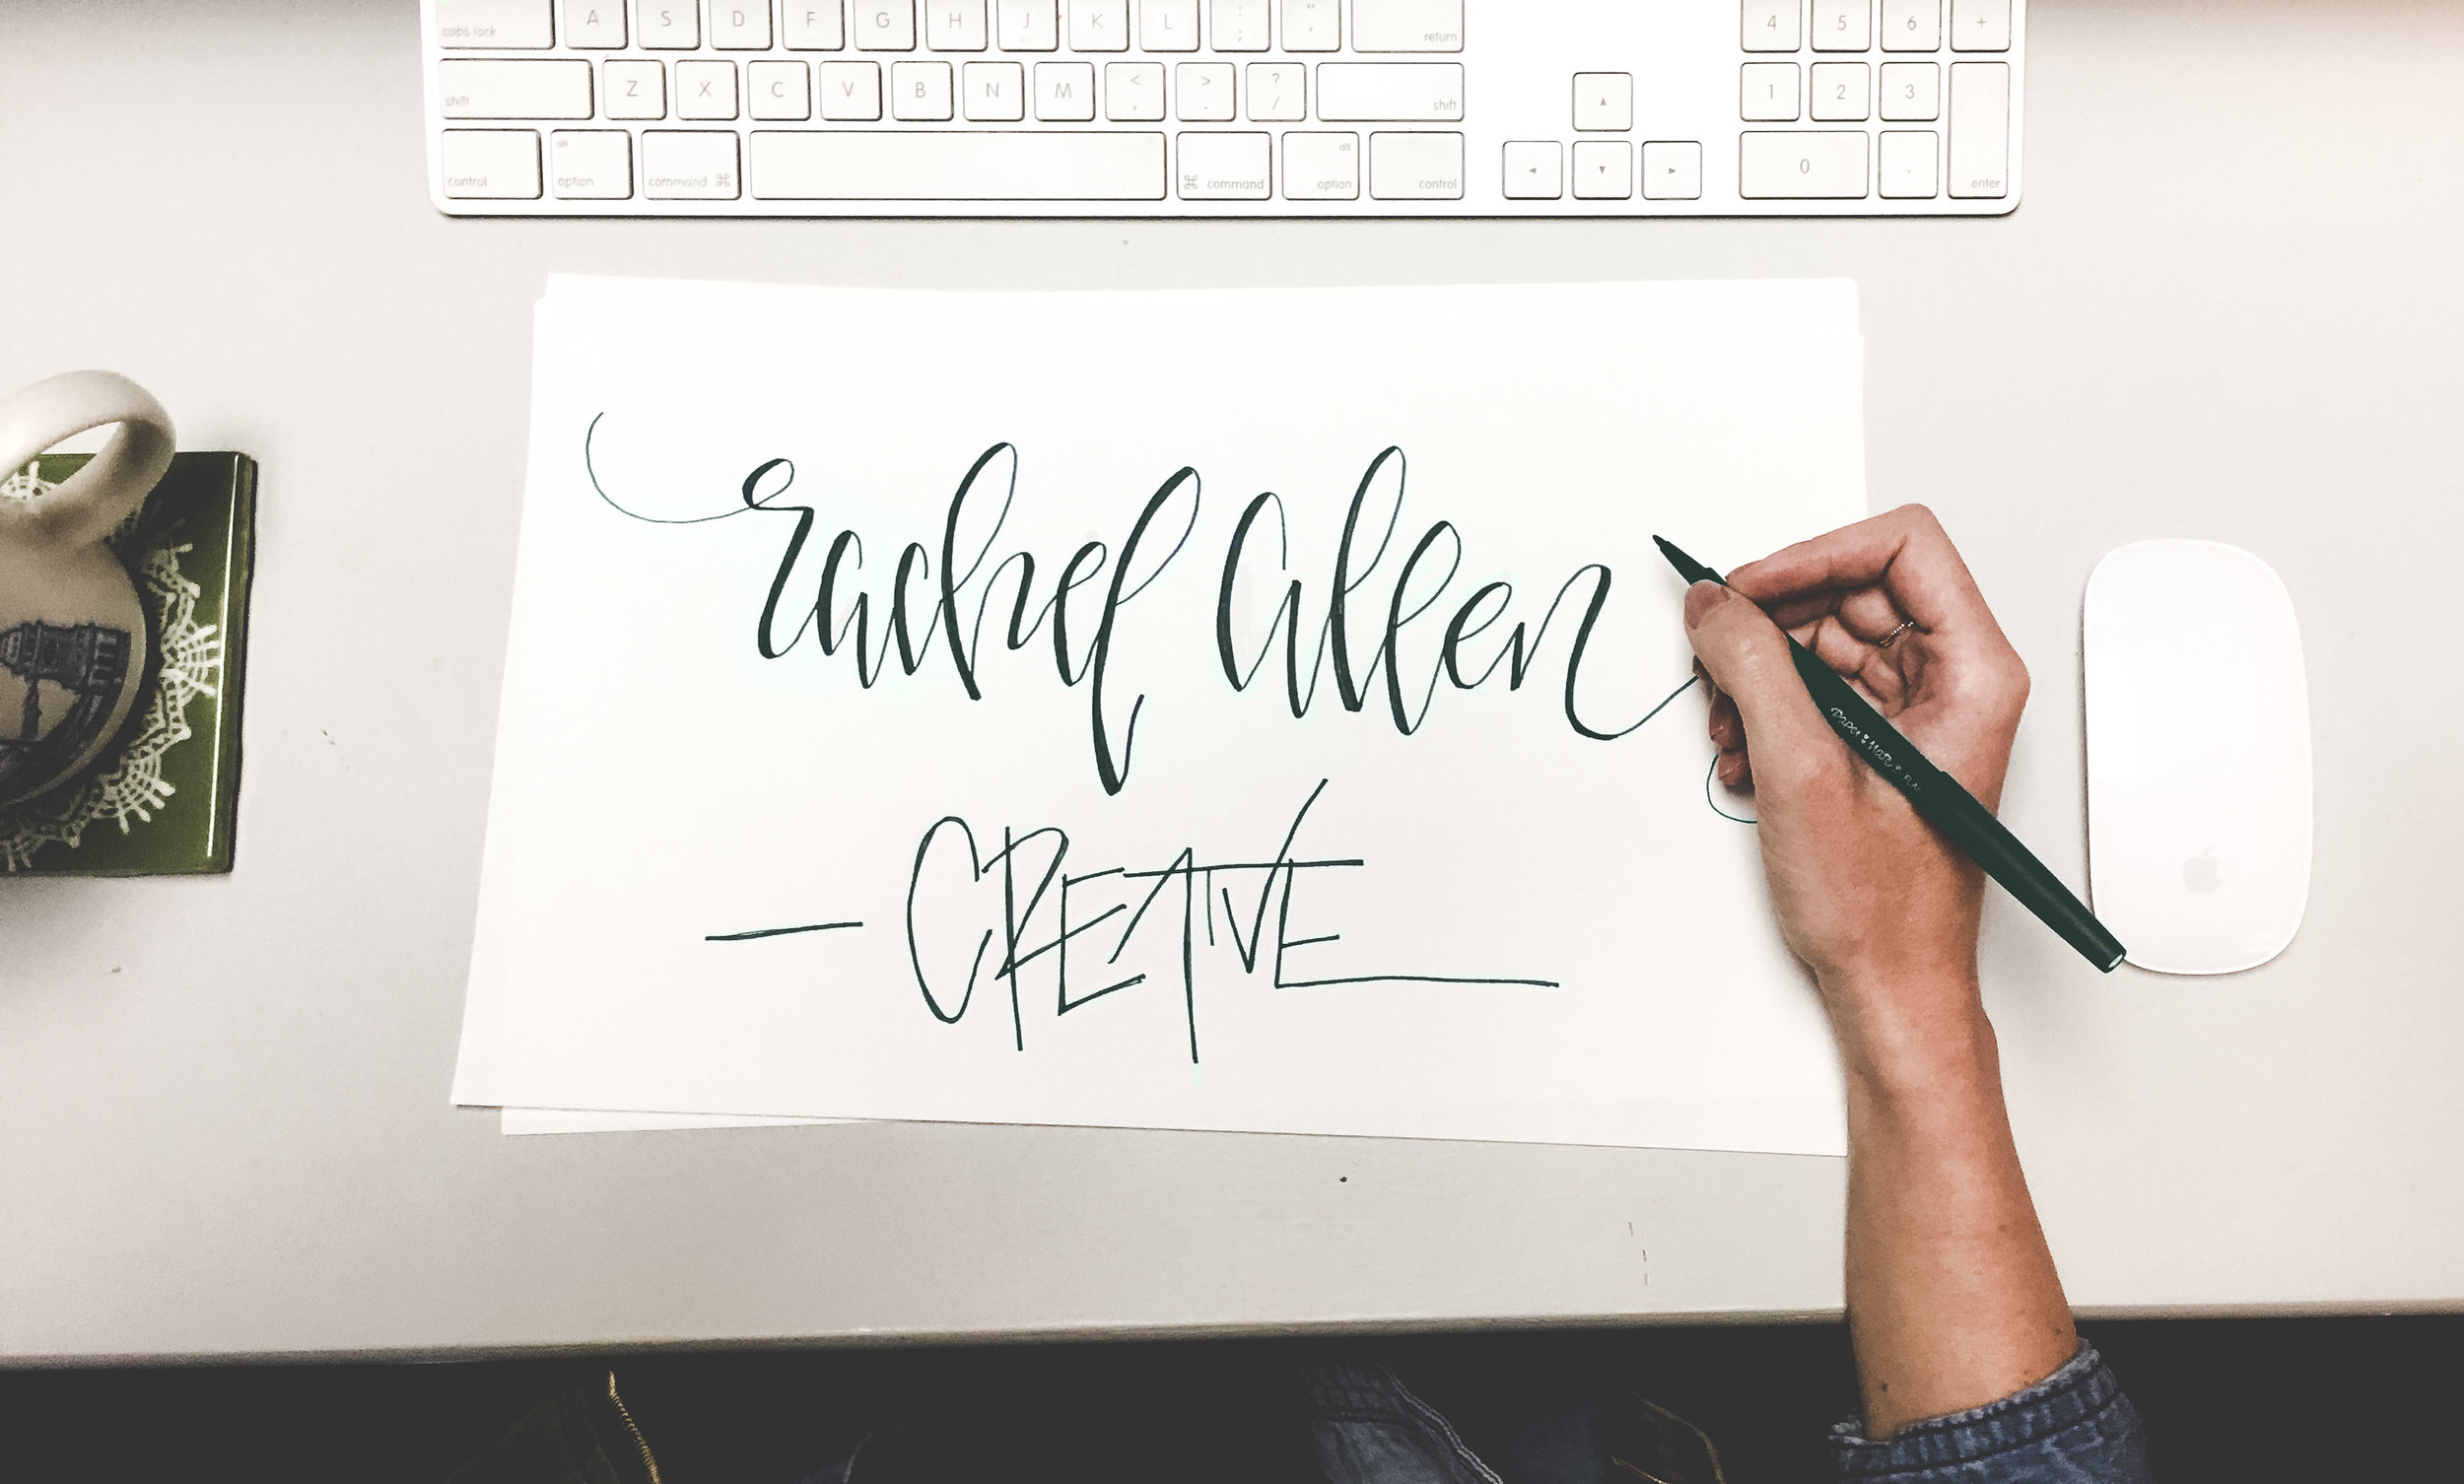 caps lock A S D F G H J K L : ; " ' return 4 5 6 +
shift Z X C V B N M < , > . ? / shift 1 2 3
control alt option command ⌘ ⌘ command alt option control 0 . enter
rachel allen
— CREATIVE
Paper Mate